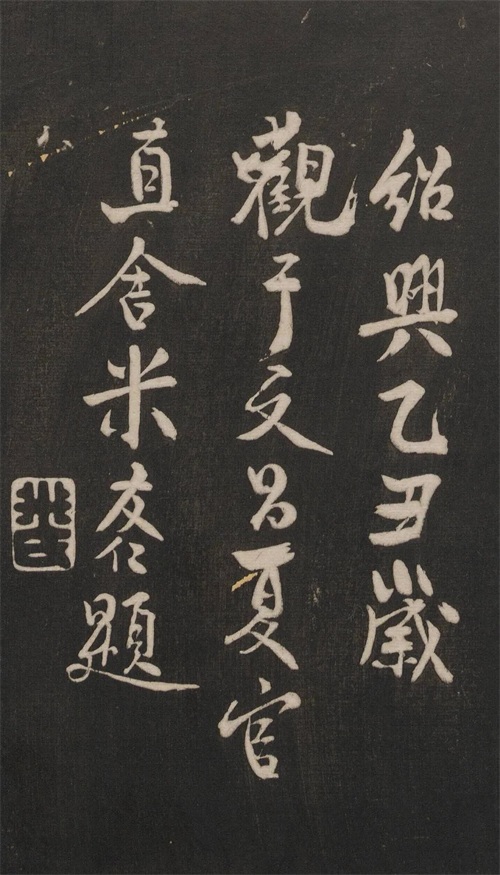 紹興乙丑歲
觀于文昌夏官
直舍米友仁題